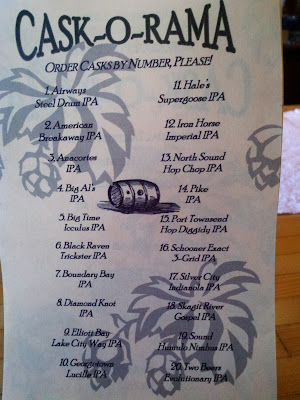 CASK-O-RAMA
ORDER CASKS BY NUMBER, PLEASE!
1. Airways
Steel Drum IPA
2. American
Breakaway IPA
3. Anacortes
IPA
4. Big Al's
IPA
5. Big Time
Icculus IPA
6. Black Raven
Trickster IPA
7. Boundary Bay
IPA
8. Diamond Knot
IPA
9. Elliott Bay
Lake City Way IPA
10. Georgetown
Lucille IPA
11. Hale's
Supergoose IPA
12. Iron Horse
Imperial IPA
13. North Sound
Hop Chop IPA
14. Pike
IPA
15. Port Townsend
Hop Diggidy IPA
16. Schooner Exact
3-Grid IPA
17. Silver City
Indianola IPA
18. Skagit River
Gospel IPA
19. Sound
Humulo Nimbus IPA
20. Two Beers
Evolutionary IPA